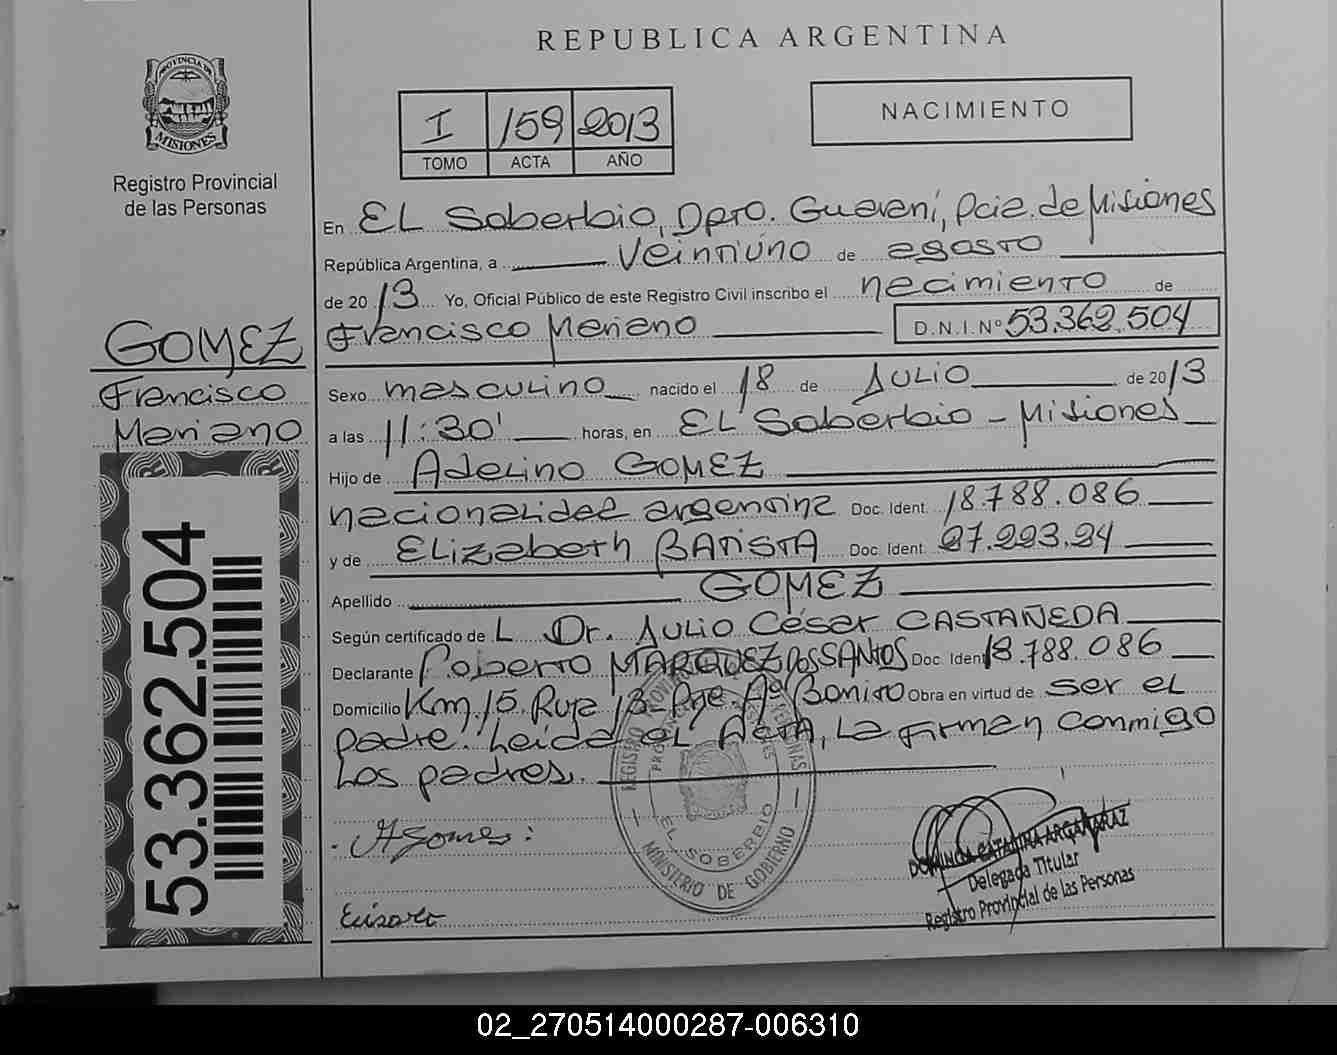 REPUBLICA ARGENTINA
PROVINCIA DE
MISIONES
Registro Provincial
de las Personas
I 159 2013
TOMO ACTA AÑO
NACIMIENTO
En EL Soberbio, Dpto. Guaraní, Pcia. de Misiones
República Argentina, a veintiuno de agosto
de 2013 Yo, Oficial Público de este Registro Civil inscribo el nacimiento de
Francisco Mariano D.N.I. Nº 53.362.504
GOMEZ
Francisco
Mariano
Sexo masculino nacido el 18 de JULIO de 2013
a las 11:30' horas, en EL Soberbio - Misiones
Hijo de Adelino GOMEZ
nacionalidad argentina Doc. Ident. 18.788.086
y de Elizabeth BATISTA Doc. Ident. 27.223.24
Apellido GOMEZ
Según certificado de L Dr. JULIO César CASTAÑEDA
Declarante Roberto MARQUEZ DOS SANTOS Doc. Ident 18.788.086
Domicilio Km 15 Ruta 13 - Pje. Aº Bonito Obra en virtud de ser el
padre. Leída el ACTA, La firman conmigo
Los padres.
53.362.504
REGISTRO PROVINCIAL DE LAS PERSONAS
EL SOBERBIO
MINISTERIO DE GOBIERNO
AGomes:
DOMINGA CATALINA ARGAÑARAZ
Delegada Titular
Registro Provincial de las Personas
02_270514000287-006310